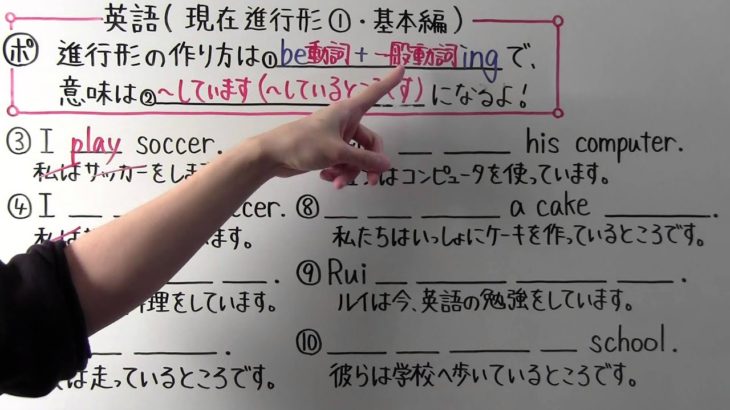 英語(現在進行形①・基本編)
ポ 進行形の作り方は①be動詞+一般動詞ingで、
意味は②~しています(~しているところです)になるよ!
③ I play soccer.
私はサッカーをしま
his computer.
はコンピュータを使っています。
④ I ccer.
ます。
⑧ a cake .
私たちはいっしょにケーキを作っているところです。
理をしています。
⑨ Rui .
ルイは今、英語の勉強をしています。
.
は走っているところです。
⑩ school.
彼らは学校へ歩いているところです。